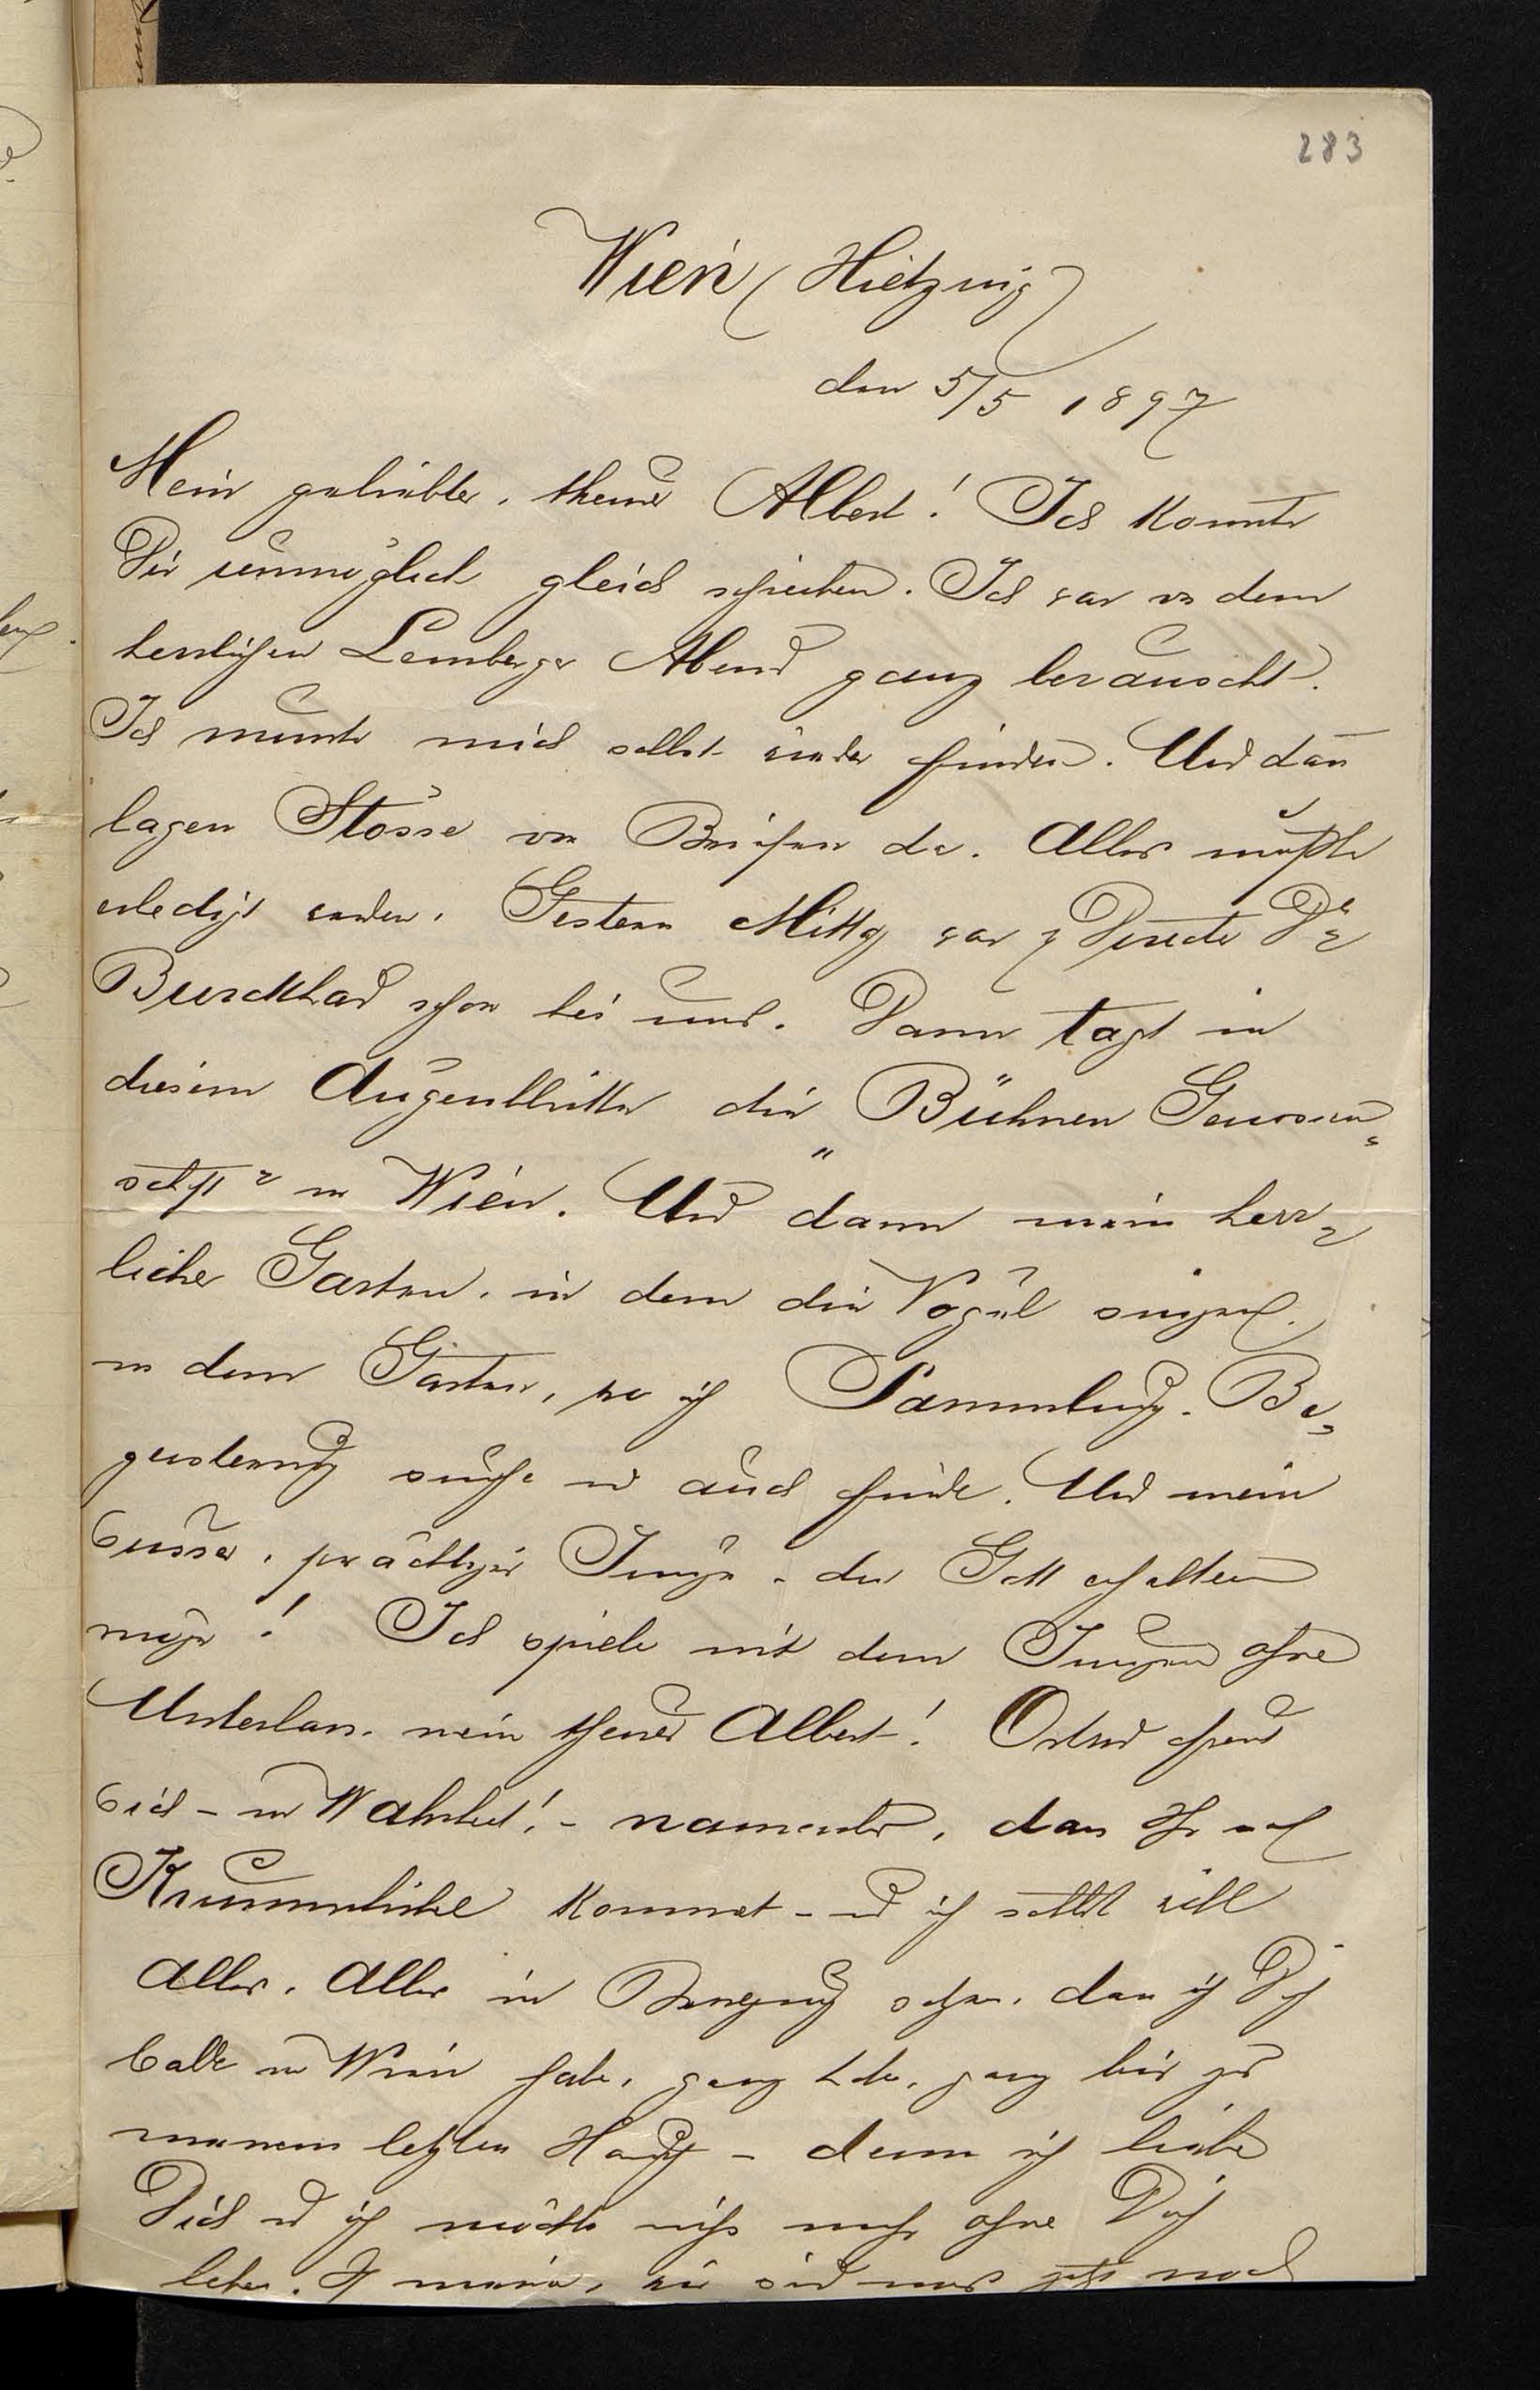 283
Wien (Hietzing)
den 5/5 1897
Mein geliebter, theurer Albert! Ich konnte
Dir unmöglich gleich schreiben. Ich war von dem
herrlichen Lemberger Abend ganz berauscht.
Ich mußte mich selbst wieder finden. Und dan̄
lagen Stösse von Briefen da. Alles mußte
erledigt werden. Gestern Mittg war Director Dr
Burckhard schon bei uns. Dann tagt in
diesem Augenblicke die „Bühnen Genossen-
schaft" in Wien. Und dann mein herr-
licher Garten, in dem die Vögel singen.
in dem Garten, wo ich Sammlung, Be-
geisterung suche und auch finde. Und mein
süsser, prächtiger Junge, den Gott erhalten
möge! Ich spiele mit dem Jungen ohne
Unterlass, mein theurer Albert! Ortrud freut
sich - in Wahrheit! - namentlich, dass Ihr nach
Krummhübel kommt - und ich selbst will
Alles, Alles in Bewegung setzen, dass ich Dich
bald in Wien habe, ganz habe, ganz bis zu
meinem letzten Hauch - denn ich liebe
Dich und ich möchte nicht mehr ohne Dich
leben. Ich meine, wir sind uns jetzt noch